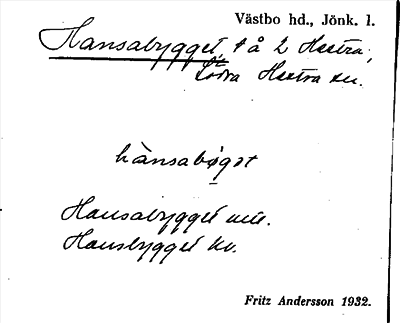 Västbo hd., Jönk. l.
Hansabygget, t å 2 Hestra,
Södra Hestra sn.
hànsabøgət
Hansabygget
Hansbygget kv.
Fritz Andersson 1932.